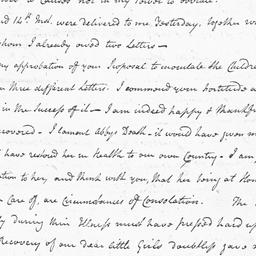 nd 14th Ind. were delivered to me Yesterday, together w
whom I already owed two Letters—
my approbation of your Proposal to inoculate the Childre
in three different Letters. I commend your Fortitude a
in the Success of it— I am indeed happy & thankfu
recovered— I lament Abbys Death— it would have given m
have restored her in Health to our own Country— I am
ation to her, and think with you, that her being at Hom
Care of, are Circumstances of Consolation. The
ly during their Illness must have pressed hard up
Recovery of our dear little Girls doubtless gave s